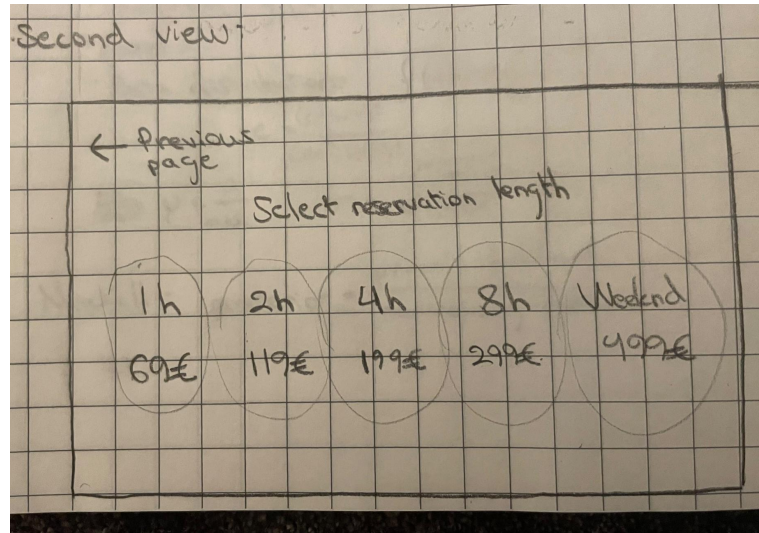 Second view:
← Previous
page
Select reservation length
1h 2h 4h 8h Weeknd
69€ 119€ 199€ 299€ 499€